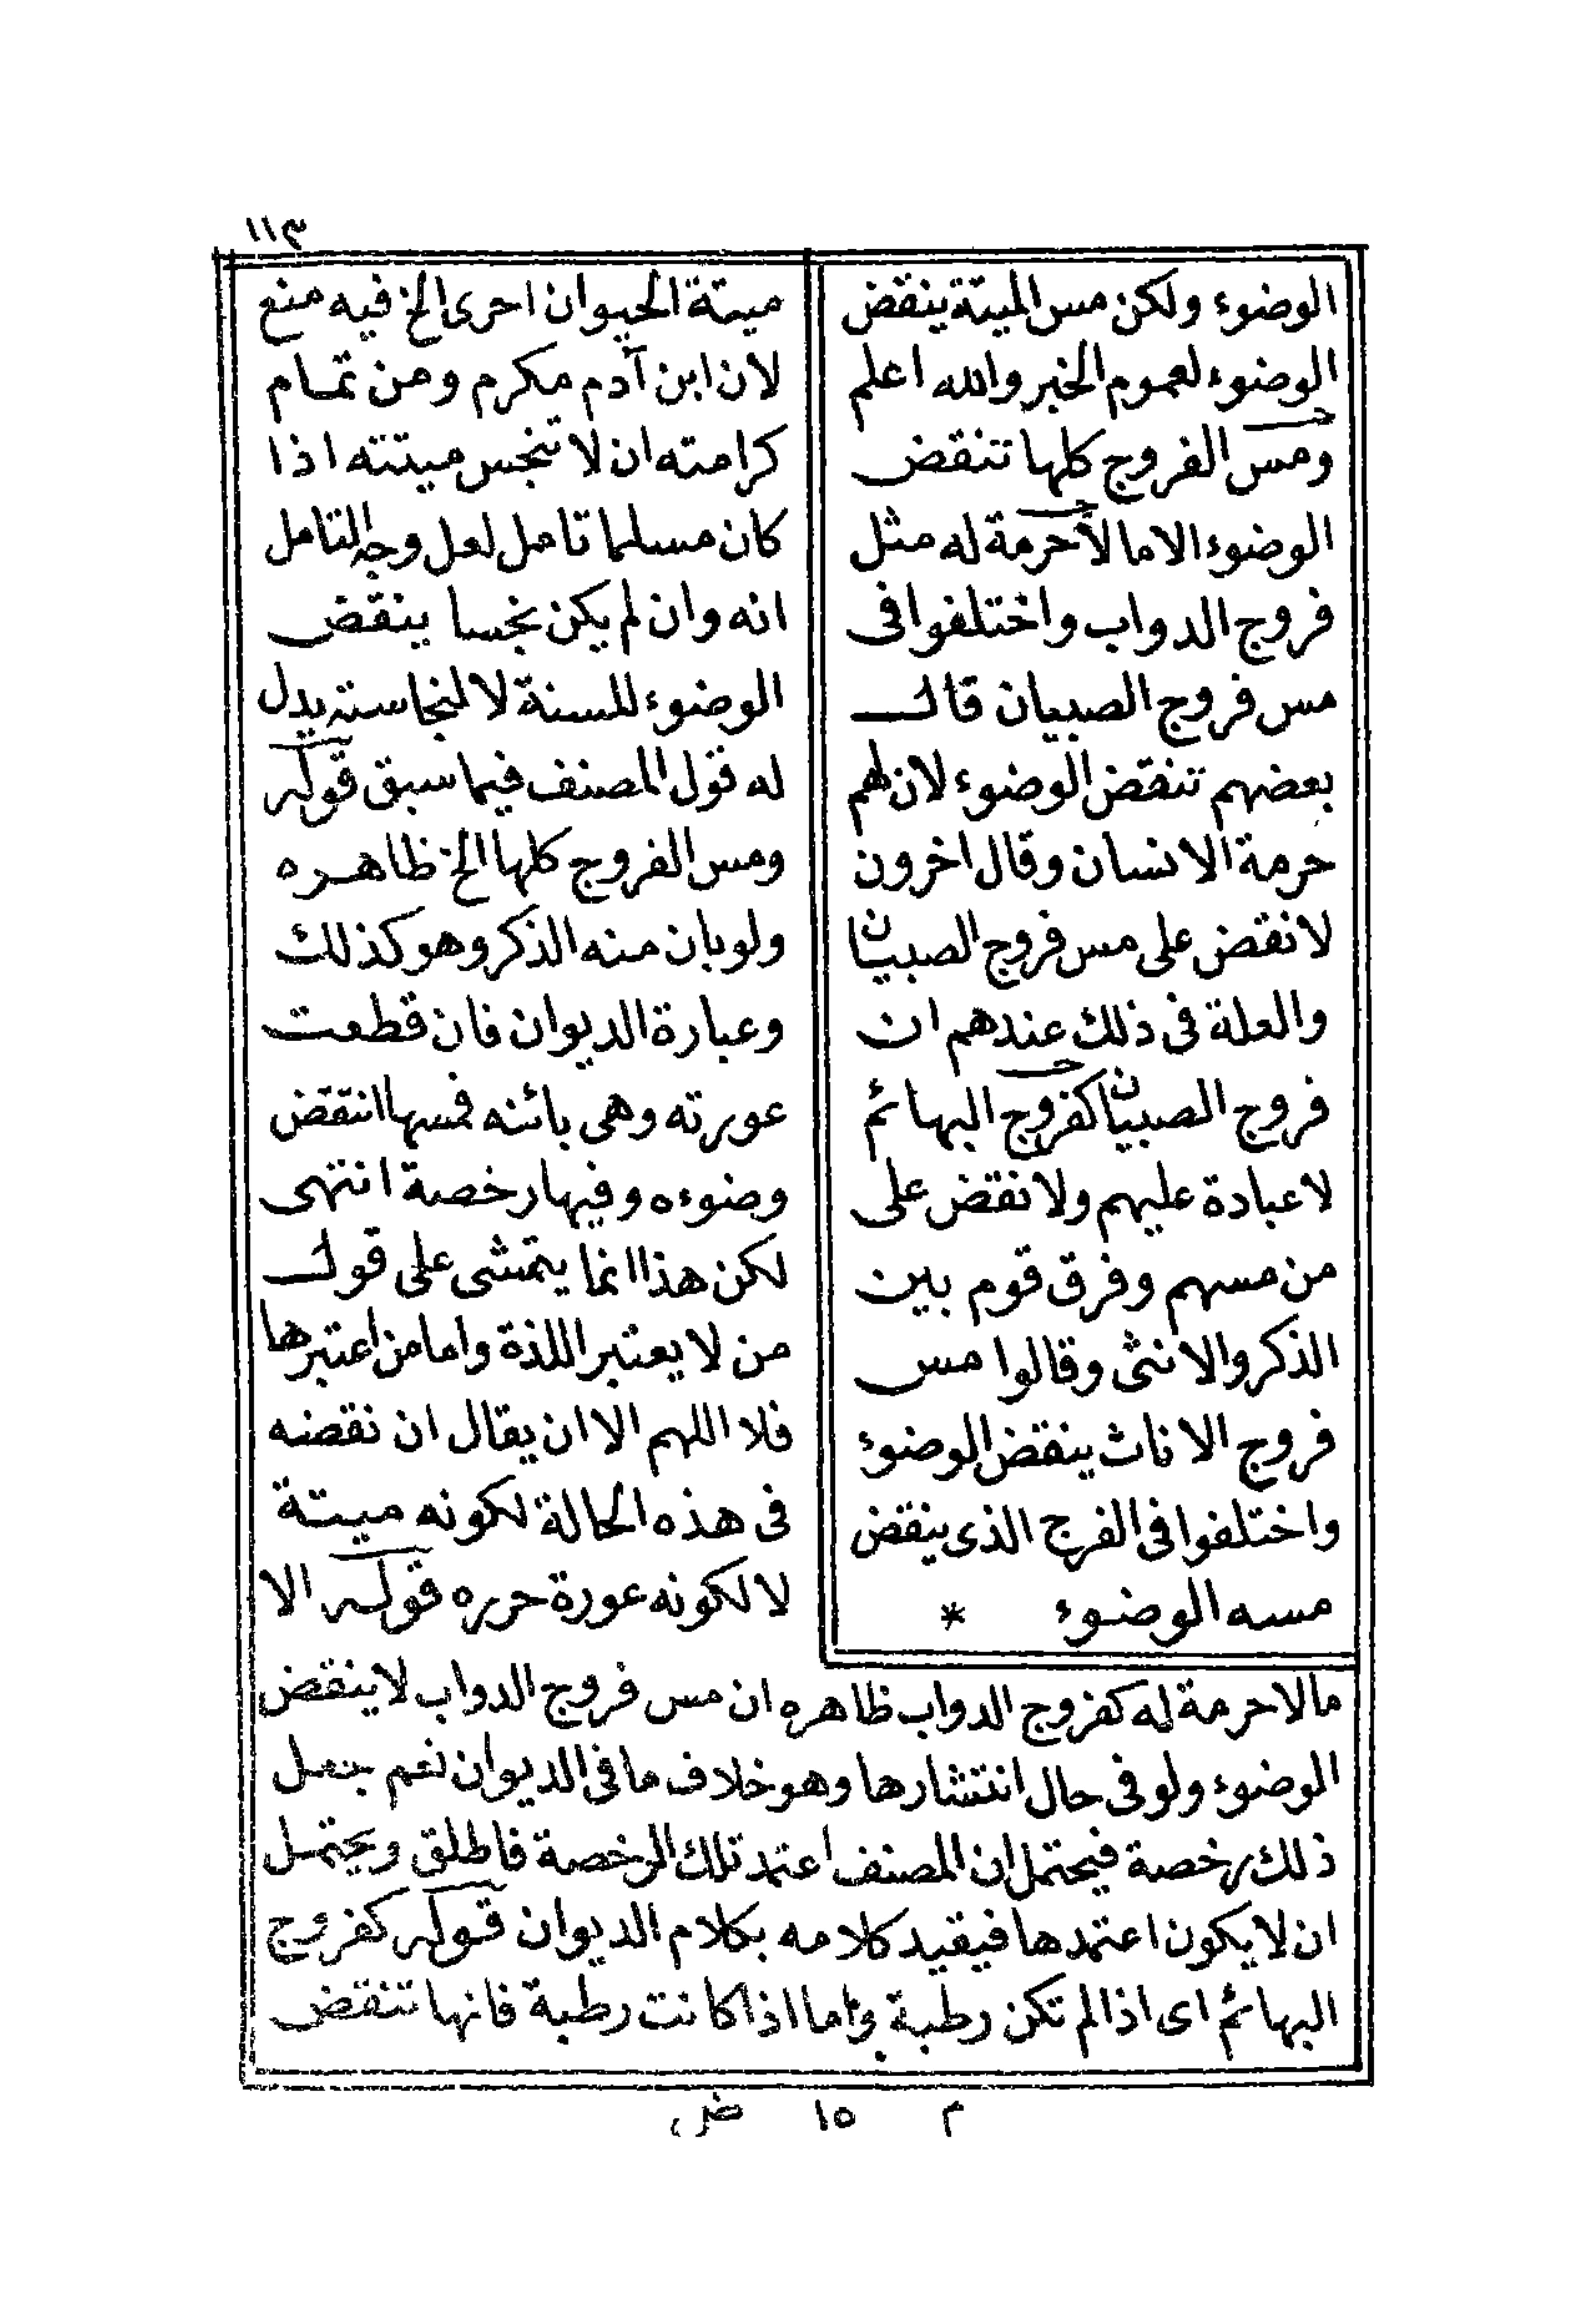 ١١٣
الوضوء ولكن مس الميتة ينقض
الوضوء لعموم الخبر والله اعلم
ومس الفروج كلها تنقض
الوضوء الا ما لا حرمة له مثل
فروج الدواب واختلفوا فى
مس فروج الصبيان قال
بعضهم تنقض الوضوء لان لهم
حرمة الانسان وقال اخرون
لا نقض على مس فروج الصبيان
والعلة فى ذلك عندهم ان
فروج الصبيان كفروج البهائم
لا عبادة عليهم ولا نقض على
من مسهم وفرق قوم بين
الذكر والانثى وقالوا مس
فروج الاناث ينقض الوضوء
واختلفوا فى الفرج الذى ينقض
مسه الوضوء *
ميتة الحيوان احرى الخ فيه منع
لان ابن آدم مكرم ومن تمام
كرامته ان لا تنجس ميتته اذا
كان مسلما تامل لعل وجه التامل
انه وان لم يكن نجسا ينقض
الوضوء للسنة لا لنجاسته يدل
له قول المصنف فيما سبق قوله
ومس الفروج كلها الخ ظاهره
ولو بان منه الذكر وهو كذلك
وعبارة الديوان فان قطعت
عورته وهى بائنه فمسها انتقض
وضوءه وفيها رخصة انتهى
لكن هذا انما يتمشى على قول
من لا يعتبر اللذة واما من اعتبرها
فلا اللهم الا ان يقال ان نقضه
فى هذه الحالة لكونه ميتة
لا لكونه عورة حرره قوله الا
ما لا حرمة له كفروج الدواب ظاهره ان مس فروج الدواب لا ينقض
الوضوء ولو فى حال انتشارها وهو خلاف ما فى الديوان نعم جعل
ذلك رخصة فيحتمل ان المصنف اعتمد تلك الرخصة فاطلق ويحتمل
ان لا يكون اعتمدها فيقيد كلامه بكلام الديوان قوله كفروج
البهائم اى اذا لم تكن رطبة واما اذا كانت رطبة فانها تنقض
م ١٥ ض